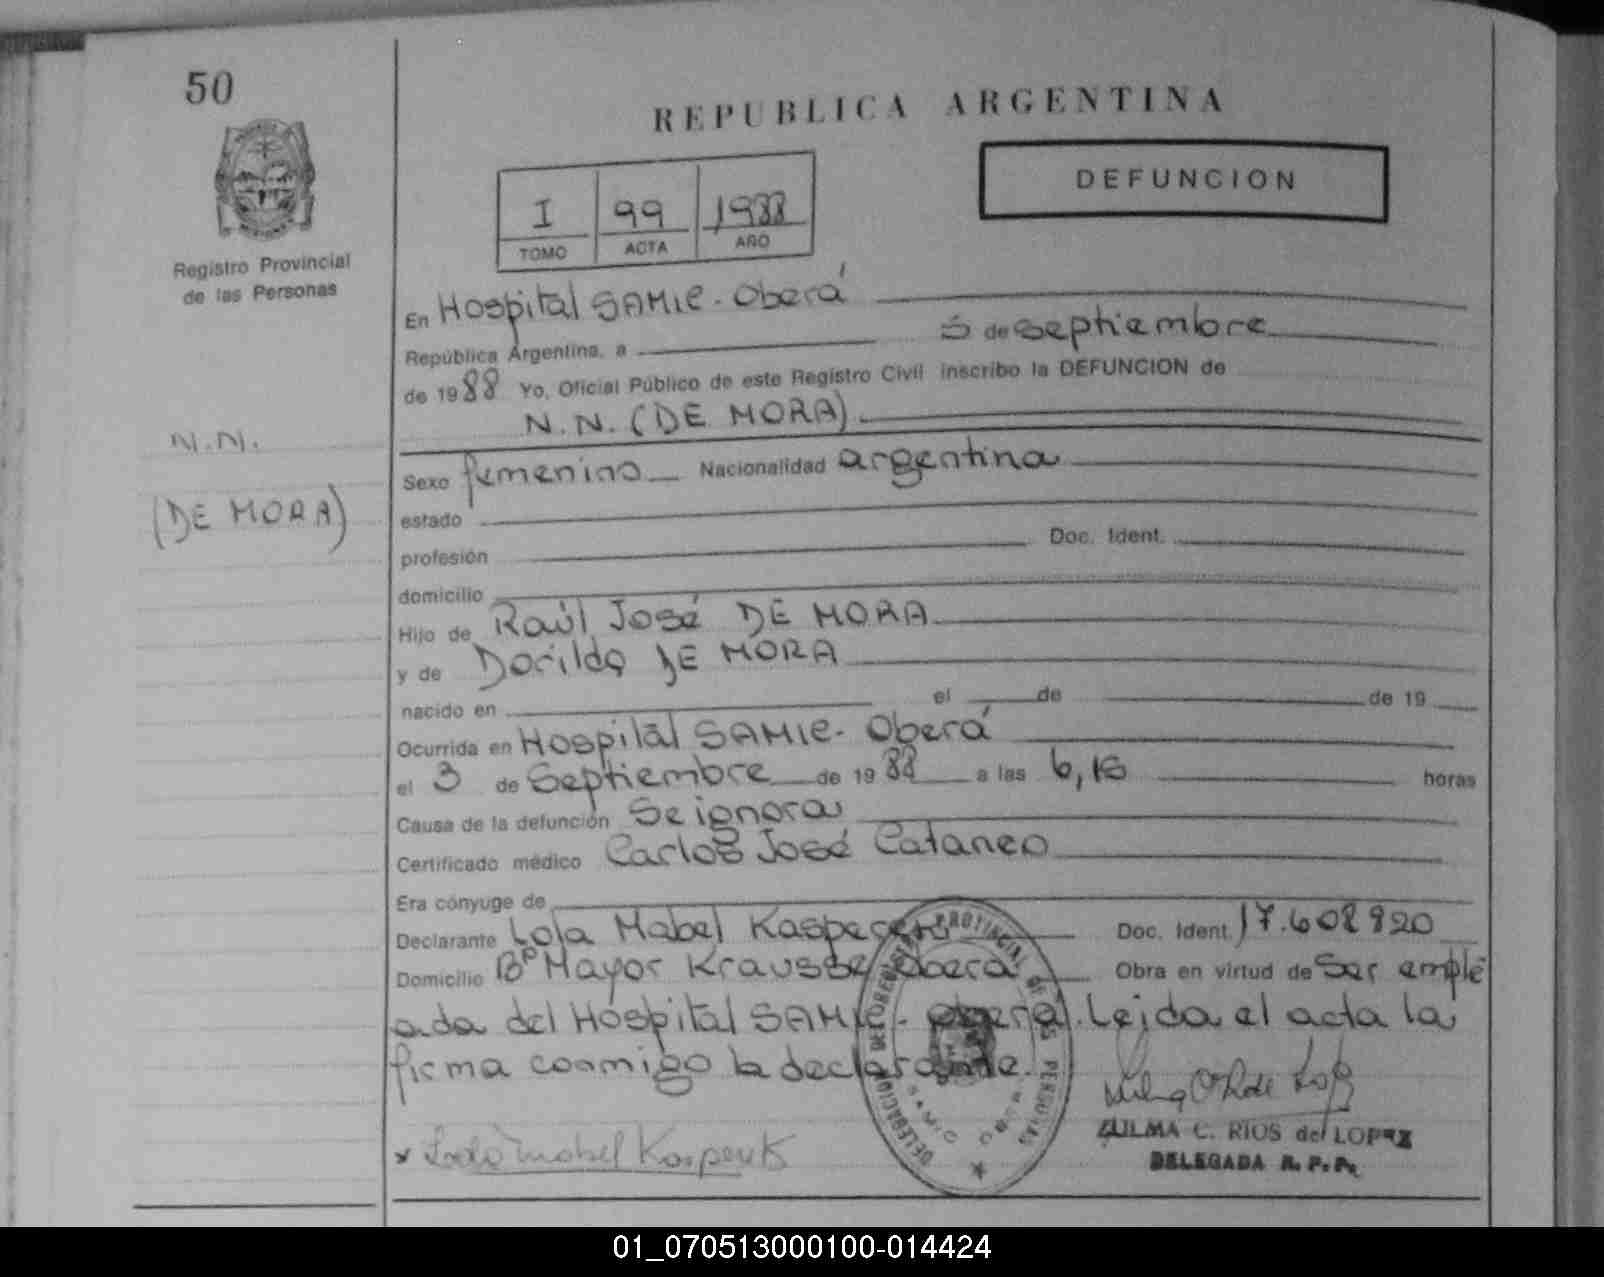 50
REPUBLICA ARGENTINA
DEFUNCION
I 99 1988
TOMO ACTA AÑO
Registro Provincial
de las Personas
En Hospital SAMIC - Oberá
República Argentina, a 5 de septiembre
de 1988 Yo, Oficial Público de este Registro Civil inscribo la DEFUNCION de
N.N. (DE MORA)
N.N.
(DE MORA)
Sexo femenino Nacionalidad argentina
estado
profesión Doc. Ident.
domicilio
Hijo de Raúl José DE MORA
y de Dorilda DE MORA
nacido en el de de 19
Ocurrida en Hospital SAMIC - Oberá
el 3 de Septiembre de 1988 a las 6,15 horas
Causa de la defunción Se ignora
Certificado médico Carlos José Cataneo
Era cónyuge de
Declarante Lola Mabel Doc. Ident. 17.608920
Domicilio Bº Mayor Krausse Oberá Obra en virtud de Ser emple
ada del Hospital SAMIC - Oberá. Leida el acta la
firma conmigo la declarante.
DELEGACION DEL REGISTRO PROVINCIAL DE LAS PERSONAS
SAMIC OBERA
ZULMA C. RIOS de LOPEZ
DELEGADA R. P. P.
01_070513000100-014424